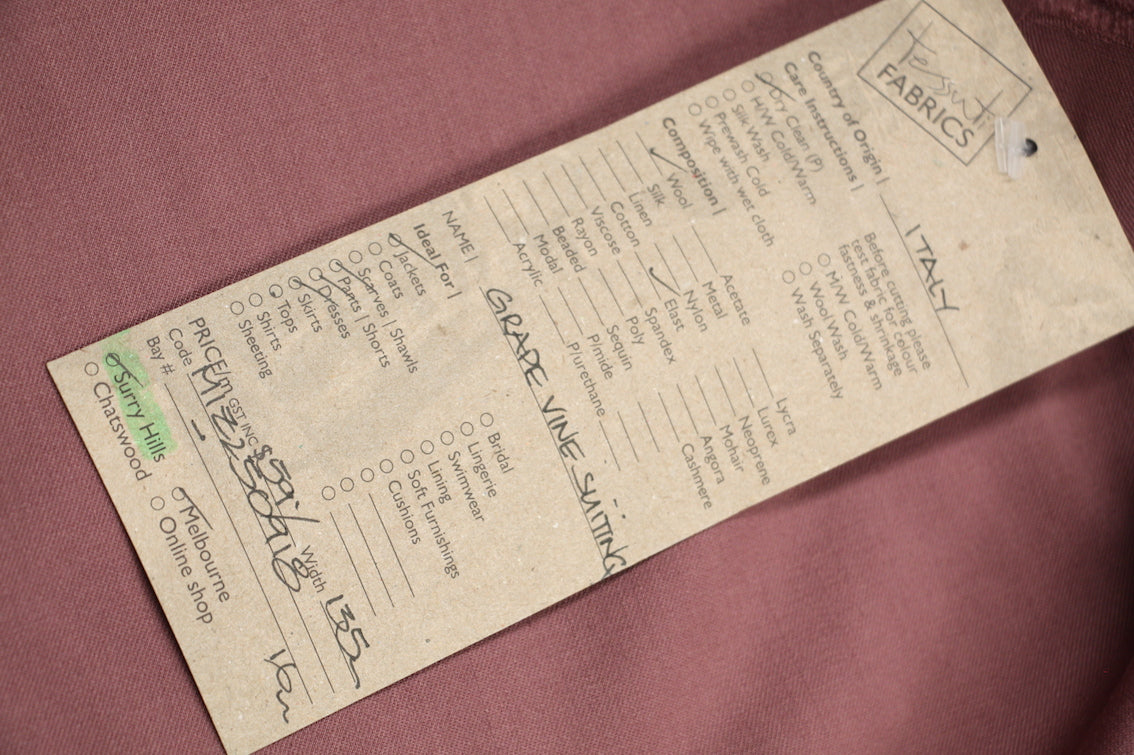 tessuti
FABRICS
Country of Origin | ITALY
Care Instructions |
Dry Clean (P)
H/W Cold/Warm
Silk Wash
Prewash Cold
Wipe with wet cloth
Before cutting please
test fabric for colour
fastness & shrinkage
M/W Cold/Warm
Wool Wash
Wash Separately
Composition |
Wool
Silk
Linen
Cotton
Viscose
Rayon
Beaded
Modal
Acrylic
Acetate
Metal
Nylon
Elast
Spandex
Poly
Sequin
P/mide
P/urethane
Lycra
Lurex
Neoprene
Mohair
Angora
Cashmere
NAME | GRAPE VINE SUITING
Ideal For |
Jackets
Coats
Scarves | Shawls
Pants | Shorts
Dresses
Skirts
Tops
Shirts
Sheeting
Bridal
Lingerie
Swimwear
Lining
Soft Furnishings
Cushions
PRICE/m GST INC $59 Width 135
Code
Bay #
Surry Hills
Chatswood
Melbourne
Online shop